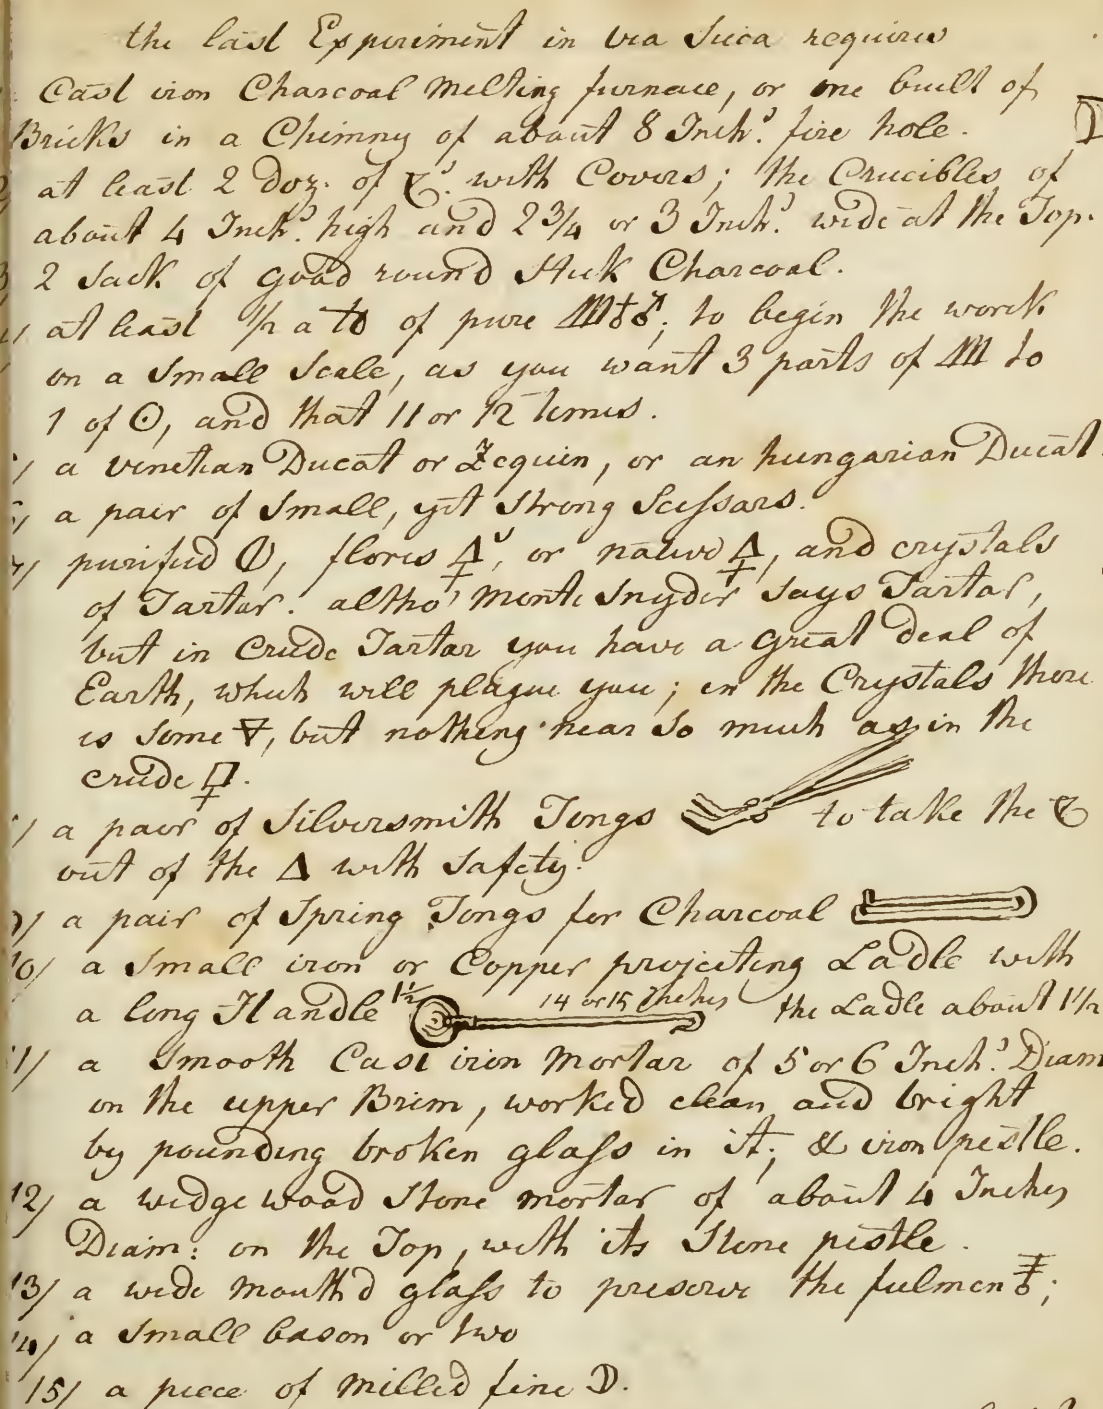 the last Experiment in via Sicca requires
Cast iron Charcoal Melting furnace, or one built of
Bricks in a Chimny of about 8 Inch.s fire hole.
at least 2 doz. of 🝧s. with Covers; the Crucibles of
about 4 Inch.s high and 2 3/4 or 3 Inch.s wide at the Top.
2 Sack of good round Stick Charcoal.
4/ at least 1/2 a ℔ of pure ♂; to begin the work
on a Small Scale, as you want 3 parts of to
1 of ☉, and that 11 or 12 times.
5/ a venetian Ducat or Zequin, or an hungarian Ducat.
6/ a pair of Small, yet Strong Scissars.
7/ purified 🜕, flores 🜍s, or native 🜍, and crystals
of Tartar. altho' Monte Snyder says Tartar,
but in Crude Tartar you have a great deal of
Earth, which will plague you; in the Crystals there
is Some 🜃, but nothing near So much as in the
crude 🜿.
8/ a pair of Silversmith Tongs to take the 🝧
out of the 🜂 with Safety.
9/ a pair of Spring Tongs for Charcoal
10/ a Small iron or Copper projecting Ladle with
a long Handle 1 1/2 14 or 15 Inches the Ladle about 1 1/2
11/ a Smooth Cast iron Mortar of 5 or 6 Inch.s Diam
on the upper Brim, worked clean and bright
by pounding broken glass in it; & iron pestle.
12/ a wedgewood Stone mortar of about 4 Inches
Diam: on the Top, with its Stone pestle.
13/ a wide mouth'd glass to preserve the fulmen;
14/ a Small bason or two
15/ a piece of Milled fine ☽.